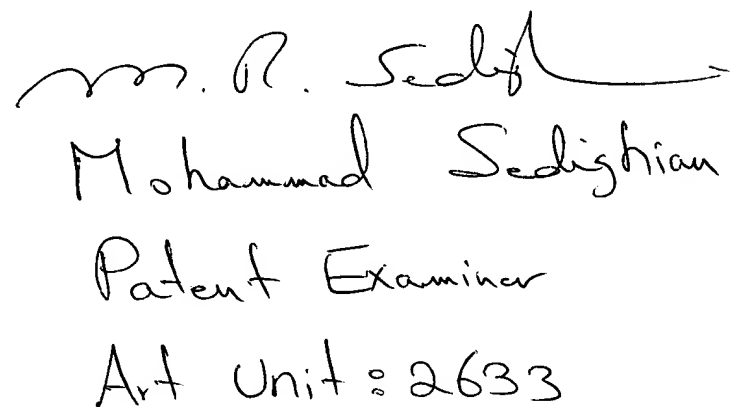 M. R. Sedigh
Mohammad Sedighian
Patent Examiner
Art Unit: 2633